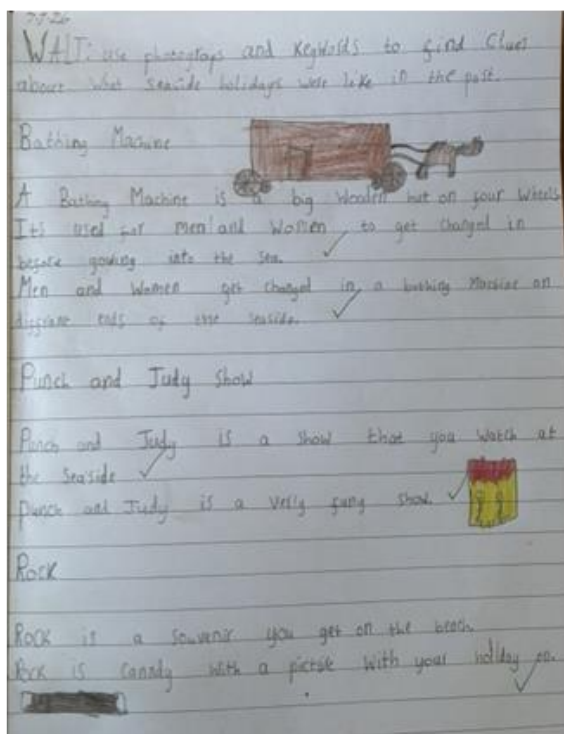 WALT: use photograps and Keywords to find Clues
about What seaside holidays were like in the past.
Bathing Machine
A Bathing Machine is a big Wooden hut on four Wheels
It's used for Men and Women to get changed in
before gowing into the Sea.
Men and Women get changed in a bathing Machine on
ends of the seaside.
Punch and Judy Show
Punch and Judy is a show that you watch at
the seaside
Punch and Judy is a show.
Rock
Rock is a Souvenir you get on the beach.
Rock is with a with your holiday on.